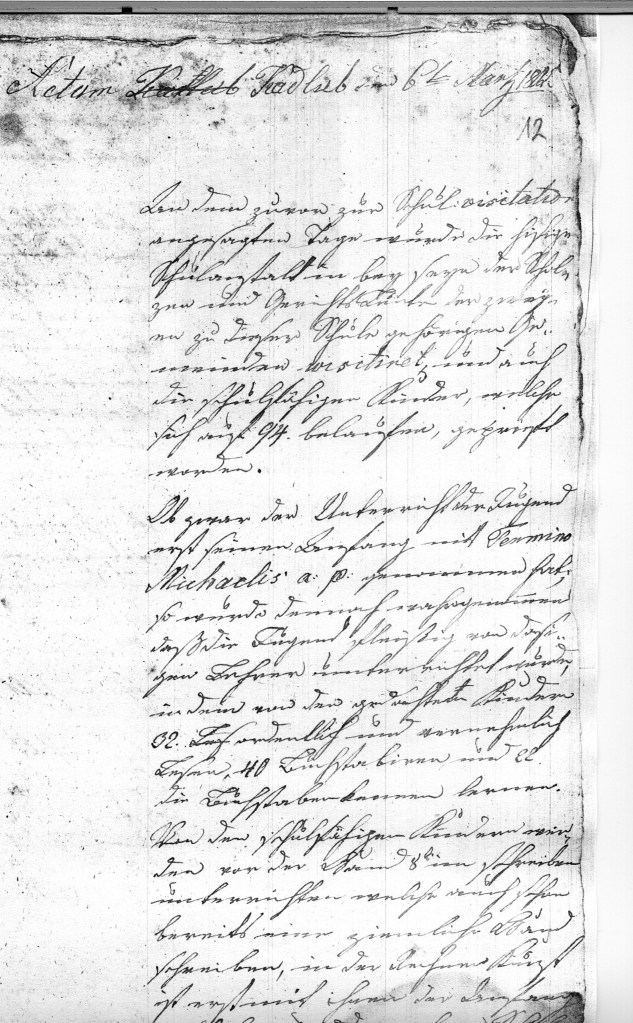 Actum Kadlub den 6t Martz
12
An dem zuvor zur Schul-visitation
angesagten Tage wurde die hisige
Schulanstalt in bey seyn der Schol-
zen und Gerichtsleute der zwey-
en zu dieser Schule gehörigen Ge-
meinden visitiret, und auch
die schulfähigen Kinder, welche
sich auf 94. belaufen, geprüft
worden.
Ob zwar der Unterricht der Jugend
erst seinen Anfang mit Termino
Michaelis a: p: genommen hat,
so wurde dennoch wahrgenommen
daß die Jugend fleißig von dasi-
gen Lehrer unterrichtet wurde,
indem von den gedachten Kindern
32. ordentlich und vernehmlich
Lesen, 40 Buchstabiren und 22.
die Buchstaben kennen lernen.
Von den schulfähigen Kindern wer-
den vor der Hand 8t im schreiben
unterrichten welche auch schon
bereits eine ziemliche Hand
schreiben, in der Rechnen Kunst
ist erst mit ihnen der Anfang